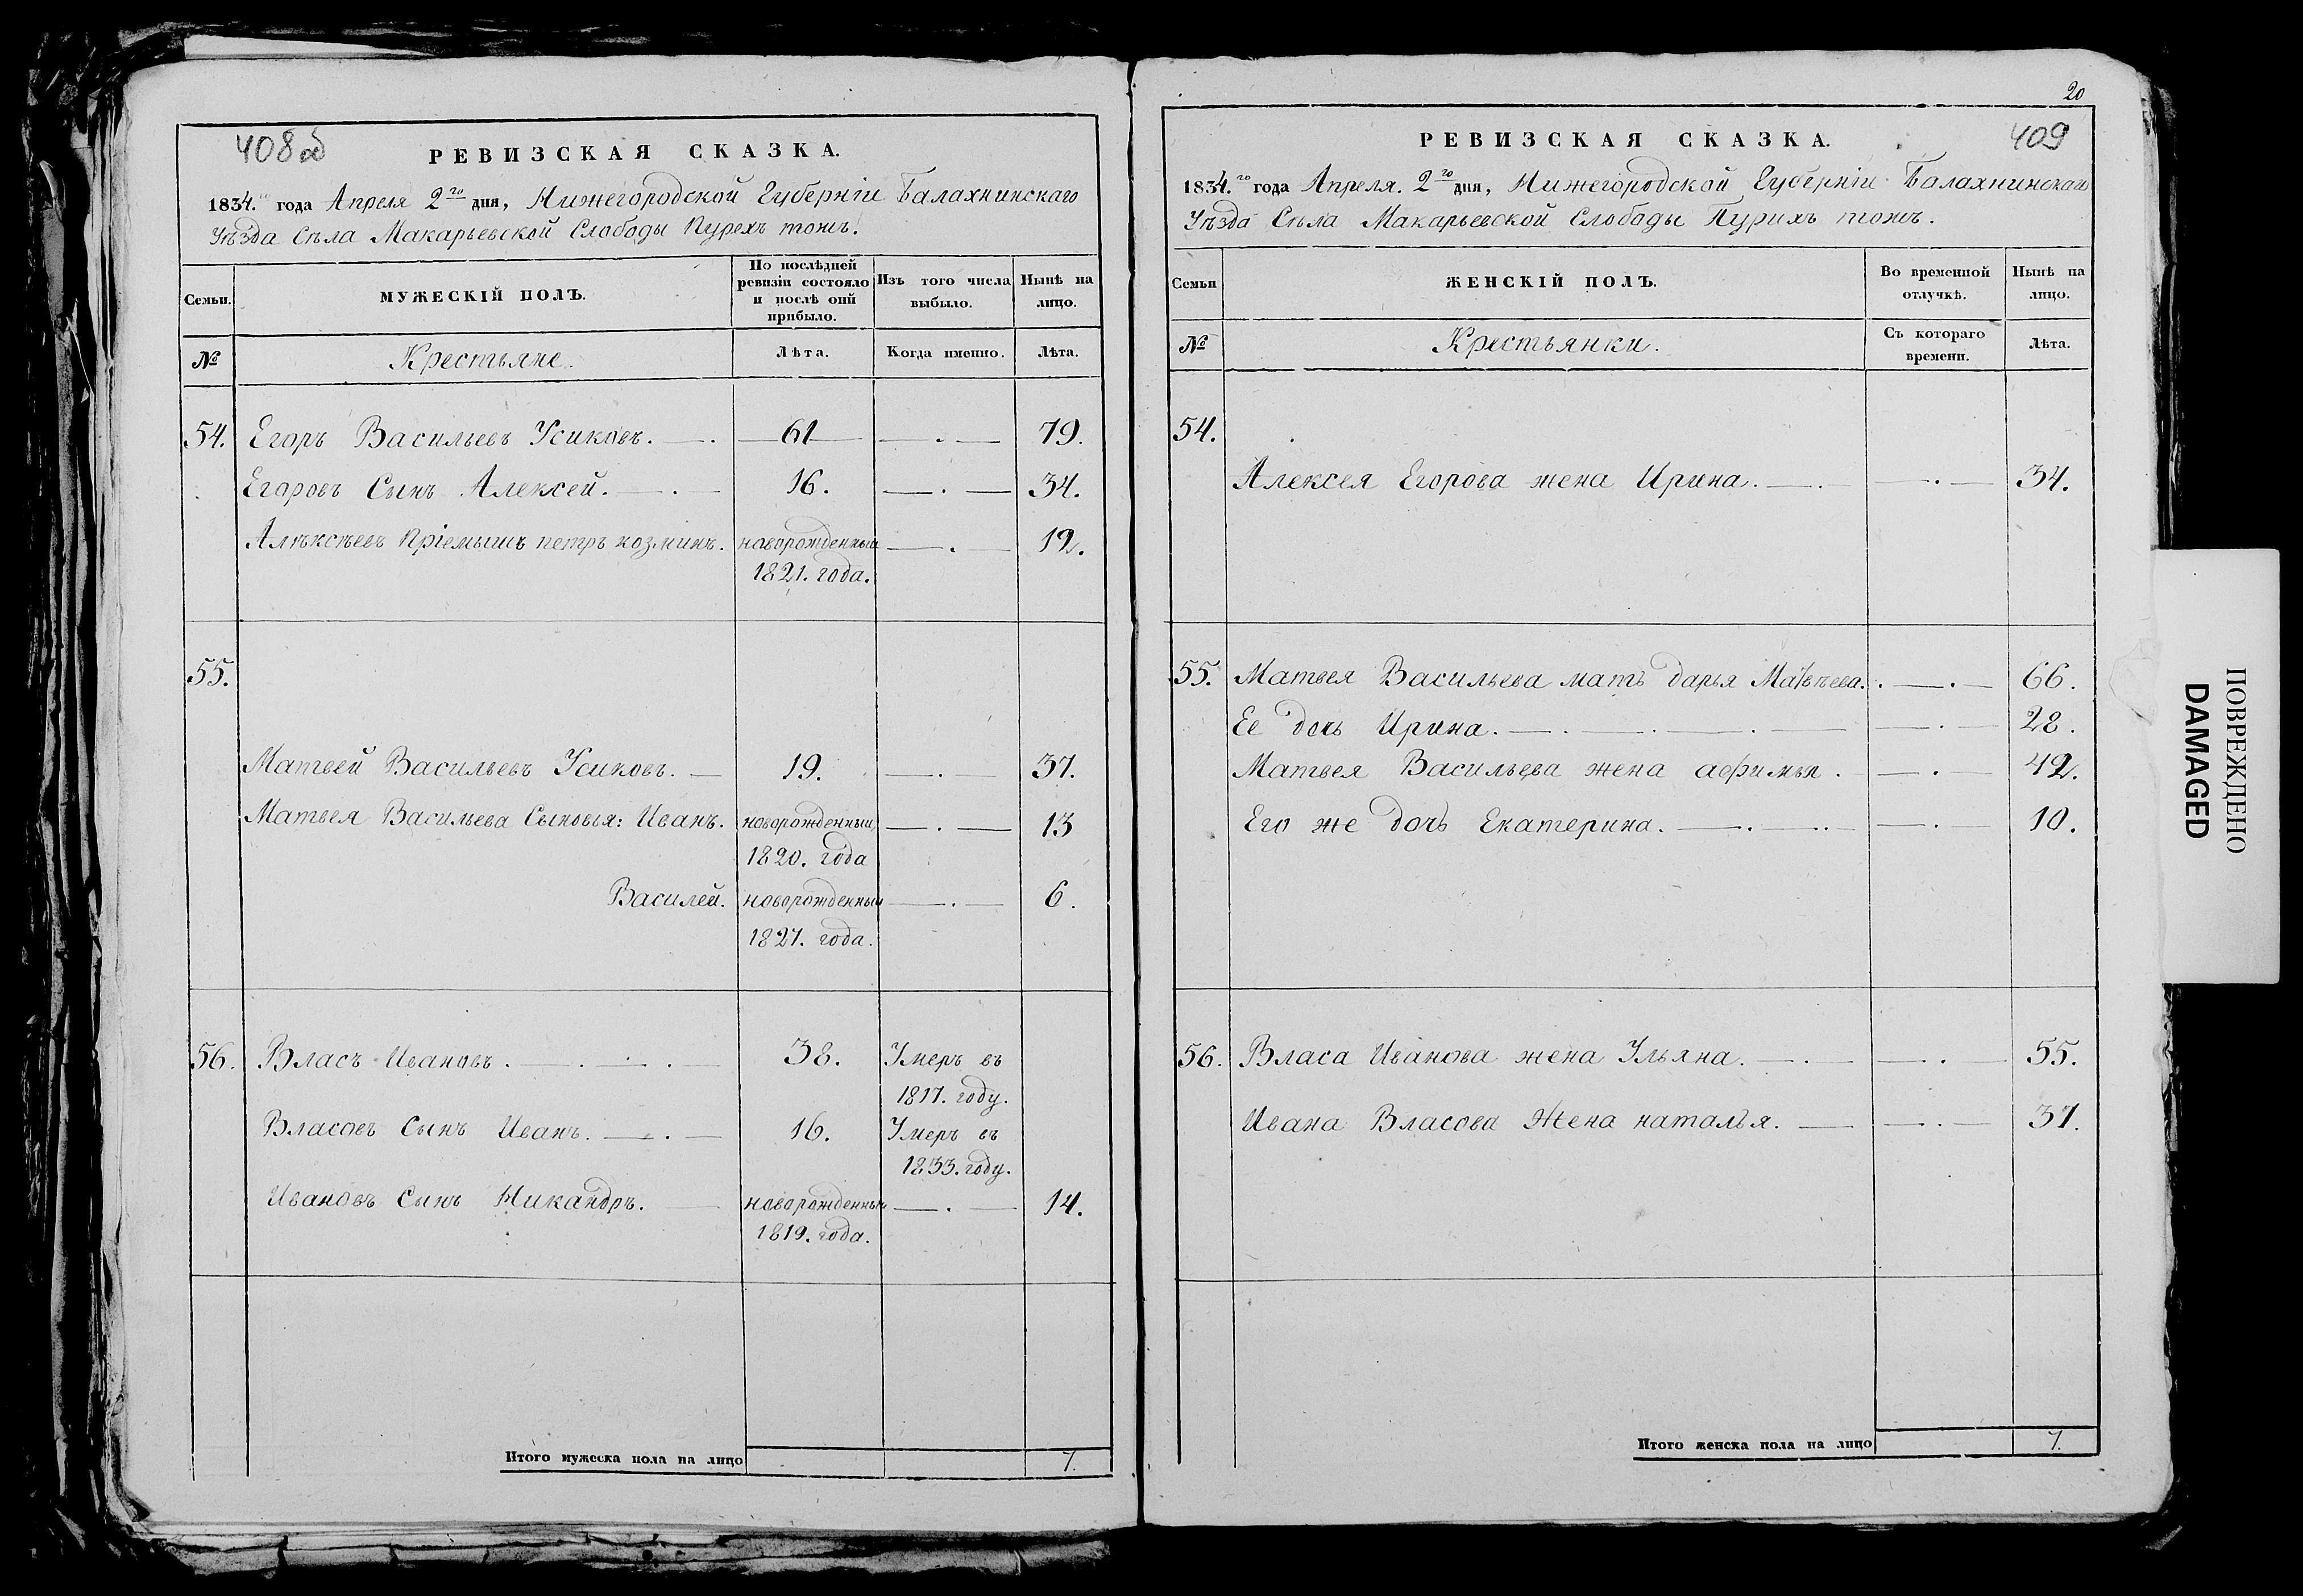 408об
РЕВИЗСКАЯ СКАЗКА.
1834.го года Апреля 2го дня, Нижегородской Губерніи Балахнинскаго
Уѣзда Села Макарьевской Слободы Пурехъ тожъ.
Семьи.
МУЖЕСКІЙ ПОЛЪ.
По послѣдней ревизіи состояло и послѣ оной прибыло.
Изъ того числа выбыло.
Нынѣ на лицо.
№ Крестьяне. Лѣта. Когда именно. Лѣта.
54. Егоръ Васильевъ Усиковъ. 61 79.
Егоровъ Сынъ Алексей. 16. 34.
Алѣксѣевъ Пріемышъ петръ козминъ. новорожденный 12.
1821. года.
55.
Матвей Васильевъ Усиковъ. 19. 37.
Матвея Васильева Сыновья: Иванъ. новорожденный 13
1820. года
Василей. новорожденный 6.
1827. года.
56. Власъ Ивановъ. 38. Умеръ въ
1817. году.
Власовъ Сынъ Иванъ. 16. Умеръ въ
1833. году.
Ивановъ Сынъ Никандръ. новорожденный 14.
1819. года.
Итого мужеска пола на лицо 7.
20
409
РЕВИЗСКАЯ СКАЗКА.
1834.го года Апреля. 2го дня, Нижегородской Губерніи Балахнинскаго
Уѣзда Села Макарьевской Слободы Пурихъ тожъ.
Семьи
ЖЕНСКІЙ ПОЛЪ.
Во временной отлучкѣ.
Нынѣ на лицо.
№ Крестьянки. Съ котораго времени. Лѣта.
54.
Алексея Егорова жена Ирина. 34.
55. Матвея Васильева мать дарья Матвѣева. 66.
Ее дочь Ирина. 28.
Матвея Васильева жена афимья. 42.
Его же дочь Екатерина. 10.
56. Власа Иванова жена Ульяна. 55.
Ивана Власова Жена наталья. 37.
Итого женска пола на лицо 7.
ПОВРЕЖДЕНО
DAMAGED